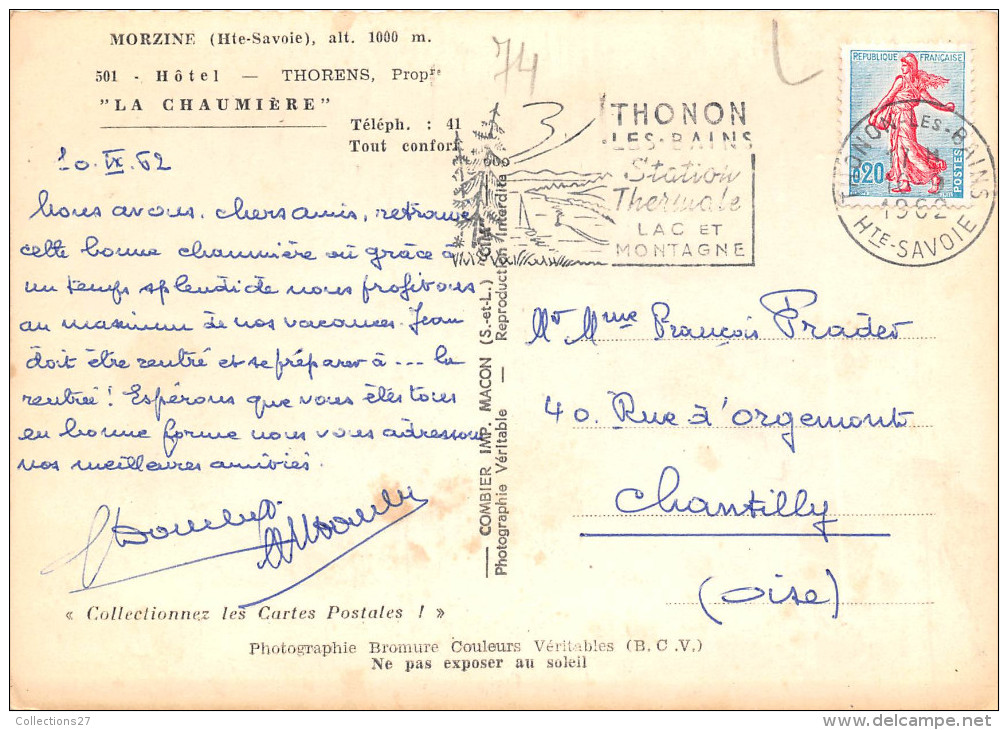 MORZINE (Hte-Savoie), alt. 1000 m.
501 - Hôtel — THORENS, Propre
"LA CHAUMIÈRE"
Téléph. : 41
Tout confort
10. IX. 62
Nous avons, chers amis, retrouvé
cette bonne chaumière où grâce à
un temps splendide nous profitons
au maximum de nos vacances. Jean
doit être rentré et se préparer à ... la
rentrée ! Espérons que vous êtes tous
en bonne forme nous vous adressons
nos meilleures amitiés.
« Collectionnez les Cartes Postales ! »
Photographie Bromure Couleurs Véritables (B.C.V.)
Ne pas exposer au soleil
— COMBIER IMP. MACON (S.-et-L.) "CIM"
Photographie Véritable — Reproduction Interdite
74
THONON
-LES-BAINS
Station
Thermale
LAC ET
MONTAGNE
REPUBLIQUE FRANÇAISE
0,20
POSTES
THONON-LES-BAINS
1962
HTE-SAVOIE
Mr Mme François Prader
40. Rue d'Orgemont
Chantilly
(Oise)
Collections27
www.delcampe.net